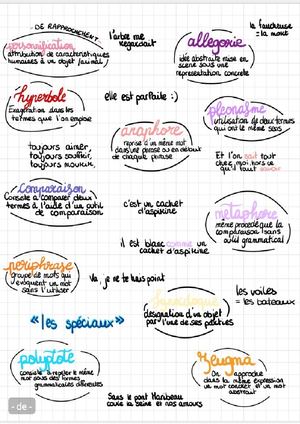 DE RAPPROCHEMENT
l'arbre me
regardait
la faucheuse
= la mort
personnification
attribution de caractéristiques
humaines à un objet/animal
allegorie
idée abstraite mise en
scène sous une
représentation concrète
hyperbole
Exagération dans les
termes que l'on emploie
elle est parfaite :)
pleonasme
utilisation de deux termes
qui ont le même sens
anaphore
reprise d'un même mot
dans une phrase ou en début
de chaque phrase
toujours aimer,
toujours souffrir,
toujours mourir.
Et l'on sait tout
chez moi, hors ce
qu'il faut savoir
Comparaison
Consiste à comparer deux
termes à l'aide d'un outil
de comparaison
c'est un cachet
d'aspirine
métaphore
même procédé que la
comparaison sans
outil grammatical
il est blanc comme un
cachet d'aspirine
périphrase
groupe de mots qui
évoquent un mot
sans l'utiliser
Va, je ne te hais point
Synecdoque
désignation d'un objet
par l'une de ses
les voiles
= les bateaux
«les spéciaux»
polyptote
consiste à répéter le même
mot sous des formes
grammaticales différentes
Zeugma
On rapproche
dans la même expression
un mot concret et un mot
abstrait
Sous le pont Mirabeau
coule la Seine et nos amours
- de -